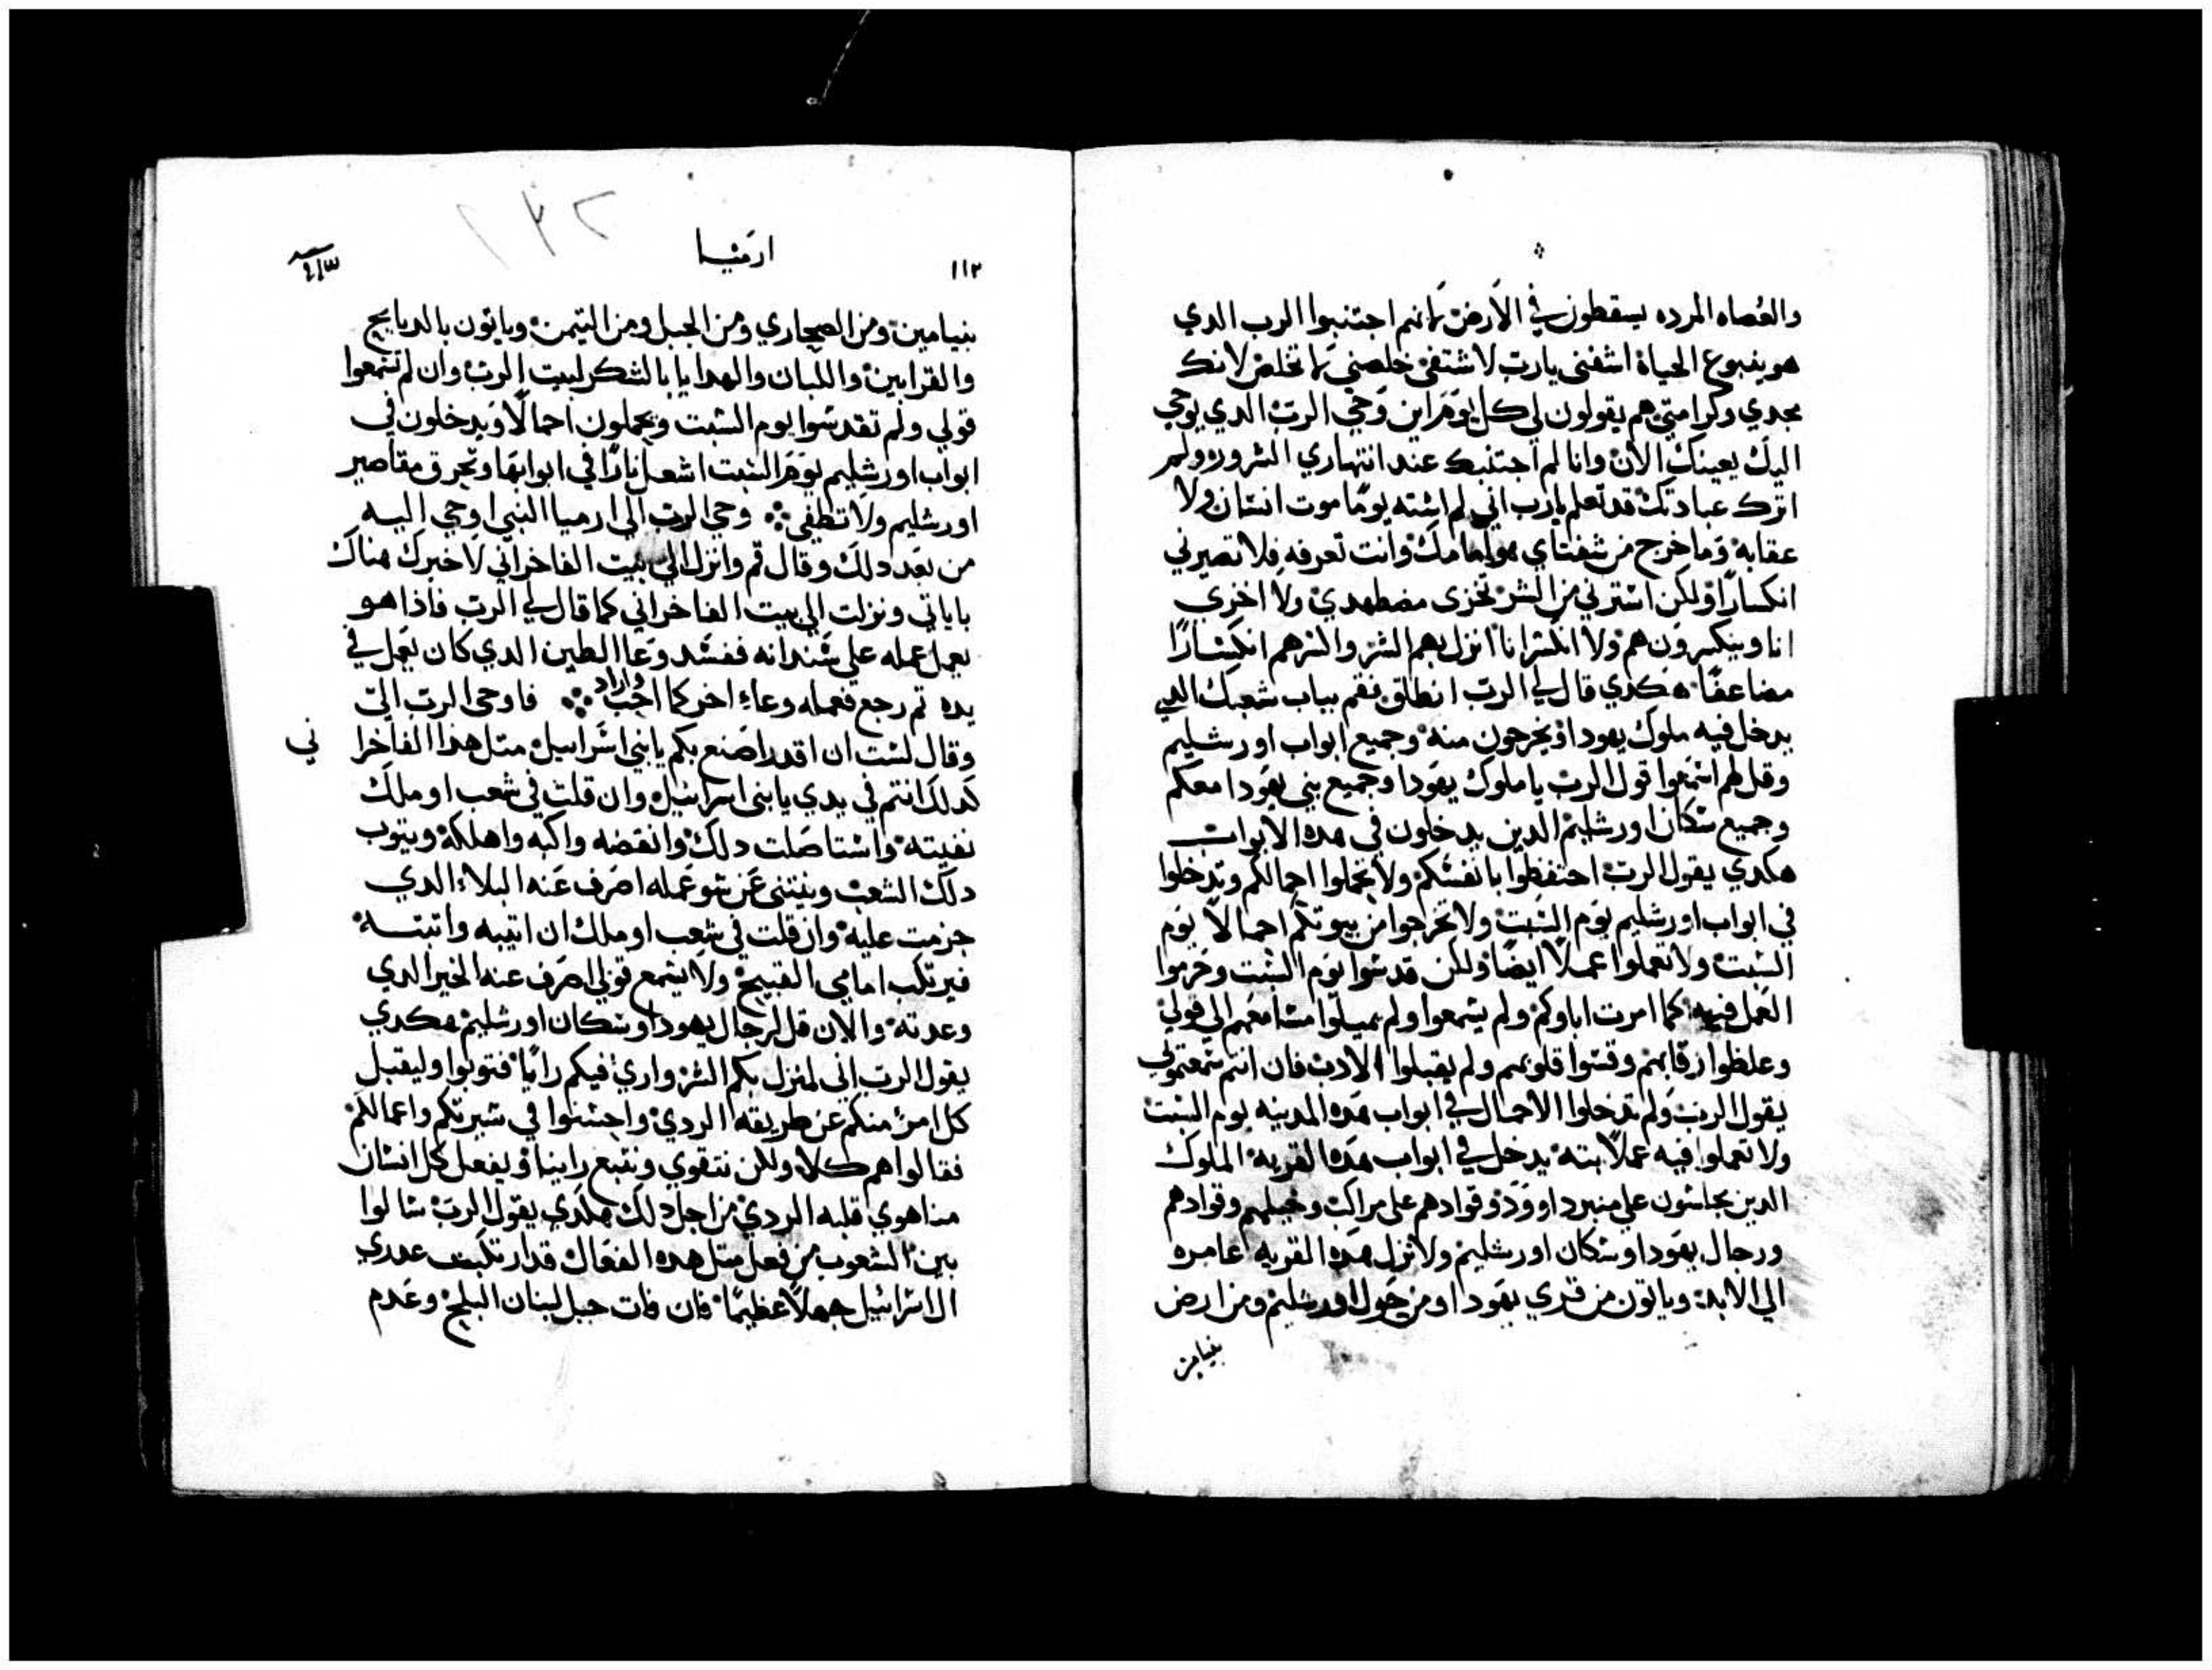 والعصاه المرده يسقطون في الارض لانهم اجتنبوا الرب الدي
هو ينبوع الحياة اشفنى يارب لاشتفي خلصني لاتخلص لانك
مجدي وكرامتي هم يقولون لي كل يوم اين وحي الرب الدي يوحي
اليك يعينك الان وانا لم اجتنبك عند انتهاري الشرور ولم
اترك عبادتك قد تعلم يارب اني لم اشته يوما موت انسان ولا
عقابه وما خرج من شفتاي هو امامك وانت تعرفه فلا تصيرني
انكسارا ولكن استرني من الشر تخزى مضطهدي ولا اخزي
انا وينكسرون هم ولا انكسر انا انزل بهم الشر واكسرهم انكسارا
مضاعفا هكدي قال لي الرب انطلق فقم بباب شعبك الدي
يدخل فيه ملوك يهودا ويخرجون منه وجميع ابواب اورشليم
وقل لهم اسمعوا قول الرب يا ملوك يهودا وجميع بني يهودا معكم
وجميع سكان اورشليم الدين يدخلون في هده الابواب
هكدي يقول الرب احتفظوا بانفسكم ولا تحملوا احمالكم وتدخلوا
في ابواب اورشليم يوم السبت ولا تخرجوا من بيوتكم احمالا يوم
السبت ولا تعملوا عملا ايضا ولكن قدسوا يوم السبت وحرموا
العمل فيه كما امرت اباوكم ولم يسمعوا ولم يميلوا مسامعهم الي قولي
وغلظوا رقابهم وقسوا قلوبهم ولم يقبلوا الادب فان انتم سمعتم قولي
يقول الرب ولم تدخلوا الاحمال في ابواب هده المدينه يوم السبت
ولا تعملوا فيه عملا بته يدخل في ابواب هده القريه الملوك
الدين يجلسون علي منبر داوود وقوادهم على مراكب وخيلهم وقوادهم
ورجال يهودا وسكان اورشليم ولا تزل هده القريه عامره
الي الابد وياتون من قري يهودا ومن حول اورشليم ومن ارض
بنيامين
١١٢
ارميا
١٣٢
بنيامين ومن الصحاري ومن الجبل ومن التيمن وياتون بالدبايح
والقرابين واللبان والهدايا بالشكر لبيت الرب وان لم تسمعوا
قولي ولم تقدسوا يوم السبت وتحملون احمالا وتدخلون في
ابواب اورشليم يوم السبت اشعل نارا في ابوابها وتحرق مقاصير
اورشليم ولا تطفي وحي الرب الي ارميا النبي اوحي اليه
من بعد دلك وقال قم وانزل الي بيت الفاخراني لاخبرك هناك
باياتي ونزلت الي بيت الفاخراني كما قال لي الرب فاذا هو
يعمل عمله علي سندانه ففسد وعا الطين الدي كان يعمل في
يده تم رجع فعمله وعاء اخر كما احب واراد فاوحى الرب الي
وقال لست ان اقدر اصنع بكم يابني اسراييل متل هدا الفاخرا
ني
كدلك انتم في يدي يابنى اسراييل وان قلت في شعب او ملك
نفيته واستاصلت دلك وانقضه واكبه واهلكه ويتوب
دلك الشعب وينتني عن سو عمله اصرف عنه البلاء الدي
جزمت عليه وان قلت في شعب او ملك ان ابنيه واتبته
فيرتكب امامي القبيح ولا يسمع قولي اصرف عنه الخير الدي
وعدته والان قل لرجال يهودا وسكان اورشليم هكدي
يقول الرب اني لمنزل بكم الشر واري فيكم رايا فتوبوا وليقبل
كل امر منكم عن طريقه الردي واحسنوا في سيرتكم واعمالكم
فقالوا هم كلا ولكن نتقوي ونتبع راينا ويفعل كل انسان
منا هوي قلبه الردي من اجل دلك هكدي يقول الرب سالوا
بين الشعوب من فعل متل هده الفعال قد ارتكبت عدري
ال اسراييل جهلا عظيما فان فات جبل لبنان البلج وعدم